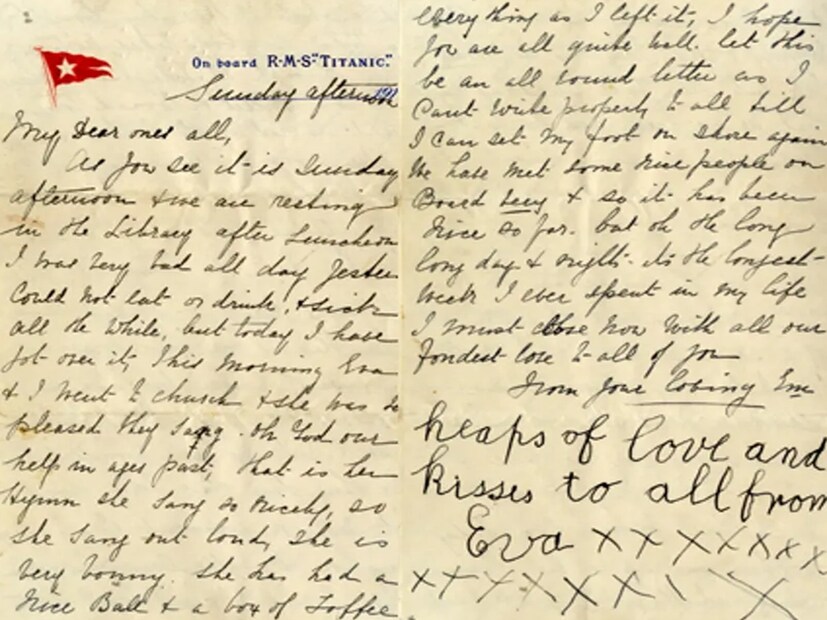 2
On board R·M·S "TITANIC."
Sunday afternoon
My Dear ones all,
As you see it is Sunday
afternoon & we are resting
in the Library after Luncheon
I was very bad all day Yester
Could not eat or drink, & sick
all the while, but today I have
got over it, This morning Eva
& I went to church & she was so
pleased they sang. Oh God our
help in ages past, that is her
Hymn she sang so nicely, so
she sang out loud, she is
very bonny. She has had a
nice Ball & a box of Toffee
everything as I left it, I hope
you are all quite well. let this
be an all round letter as I
Cant write properly to all till
I can set my foot on shore again
We have met some nice people on
Board Lucy & so it has been
nice so far. but oh the long
long days & nights. its the longest
week I ever spent in my life
I must close now with all our
fondest love to all of you
from your loving Em
heaps of love and
kisses to all from
Eva x x x x x x x x
x x x x x x x \ x